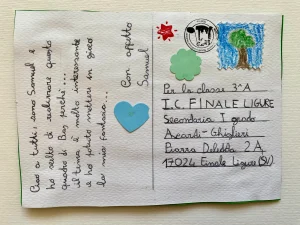 Ciao a tutti, sono Samuel e
ho scelto di realizzare questo
quadro di Bay perché...
il tema è molto interessante
e ho potuto mettere in gioco
la mia fantasia...
Con affetto
Samuel
Per la classe 3ªA
I.C. FINALE LIGURE
Secondaria I grado
Aycardi-Ghiglieri
Piazza Deledda 2A
17024 Finale Ligure (SV)